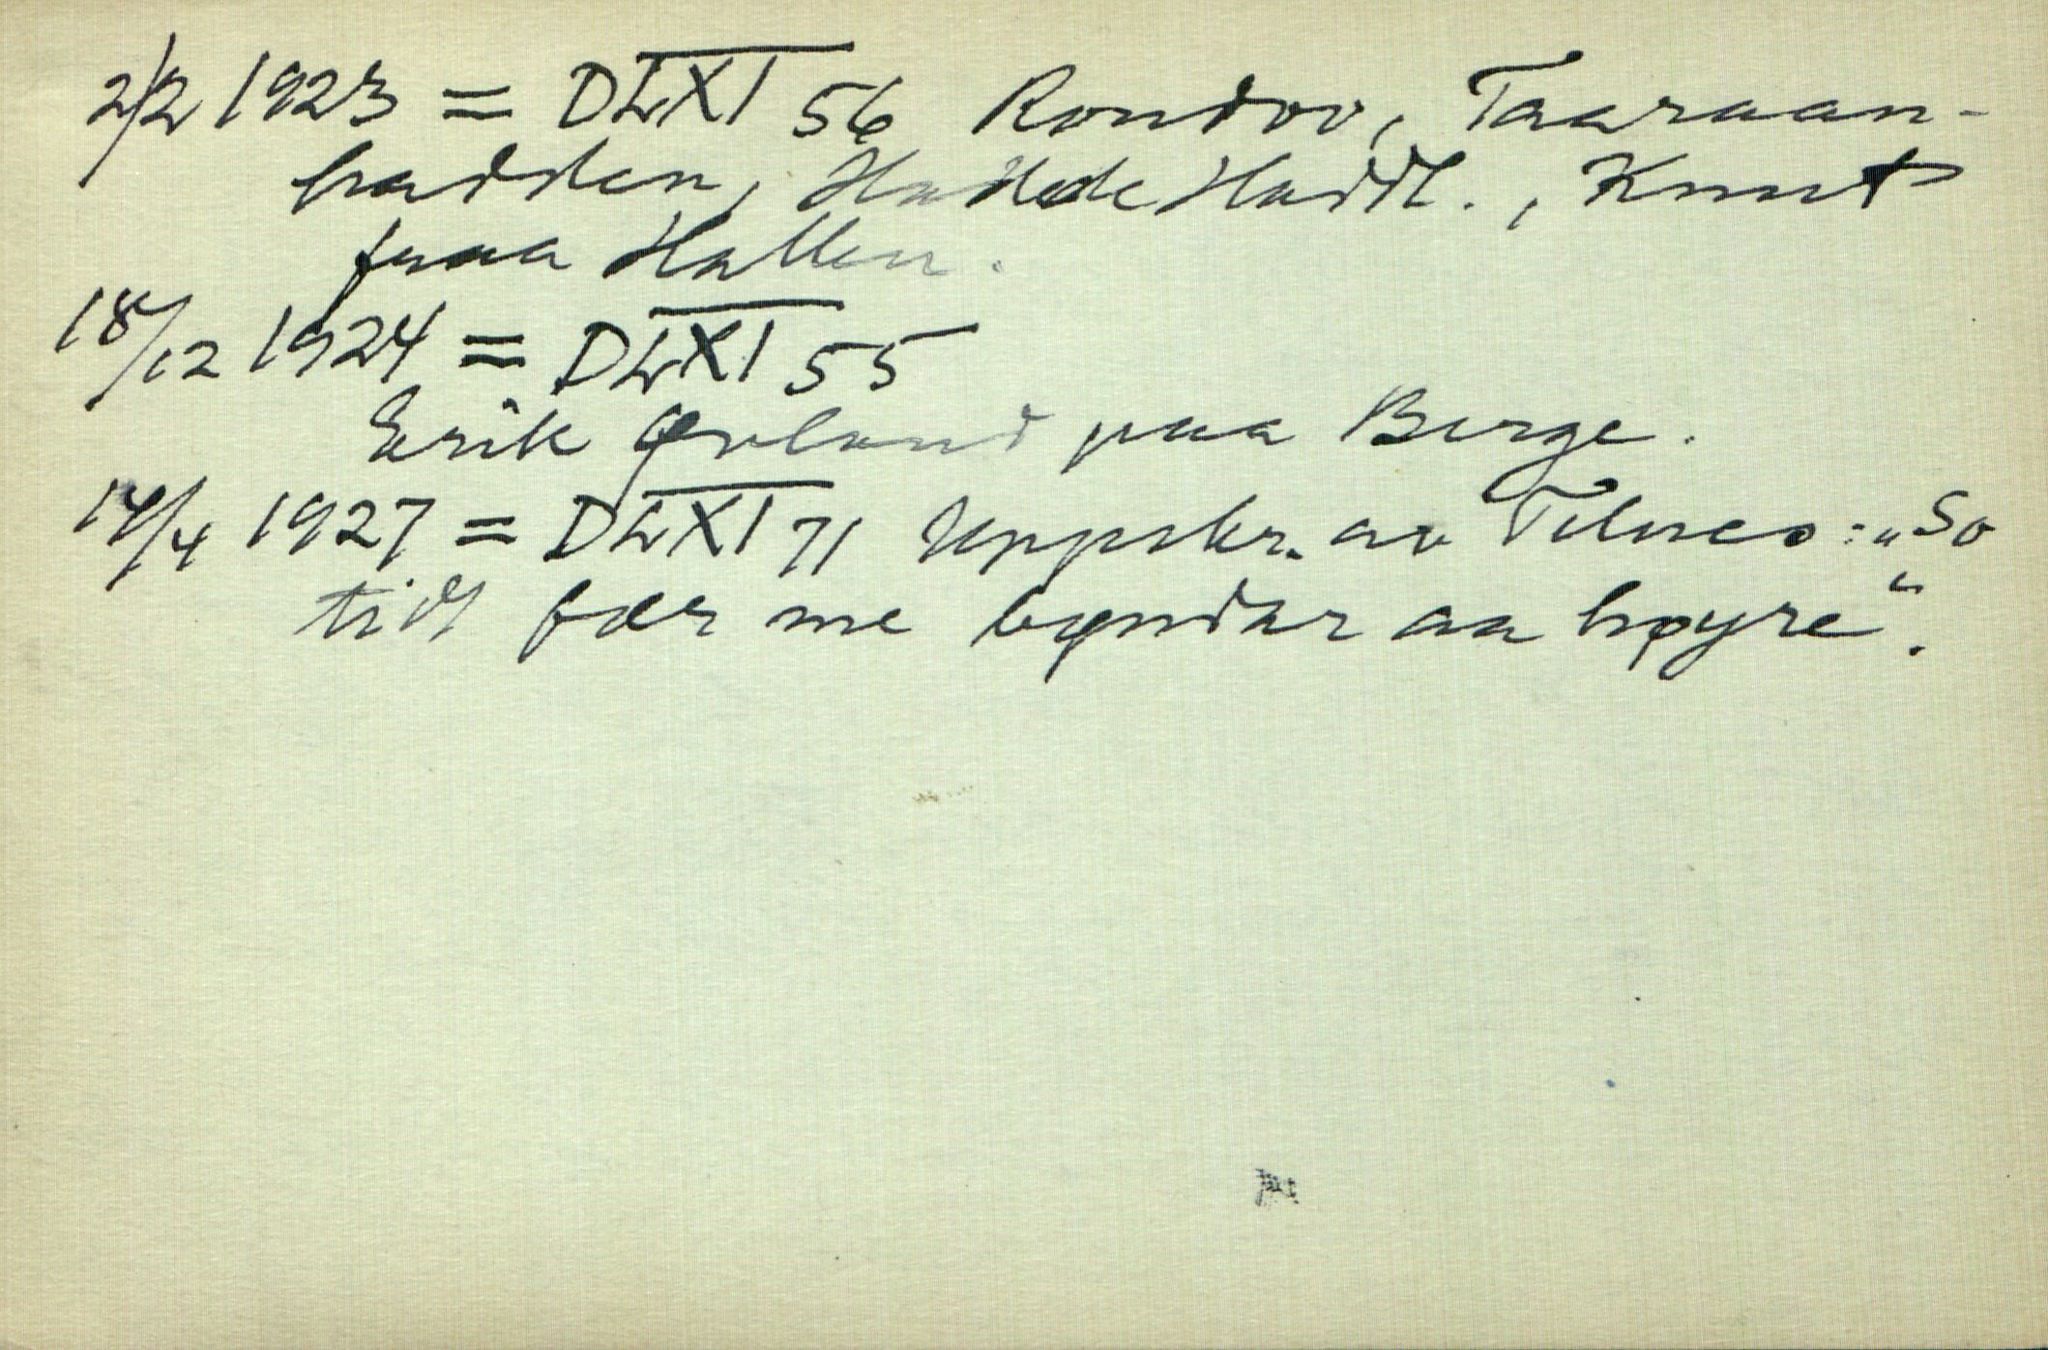 2/2 1923 = DLXI 56 Rondvo, Taaraan-
hadden, Hadde Haddl., Knut
fraa Hallen.
18/12 1924 = DLXI 55
Erik Øvland paa Berge.
14/4 1927 = DLXI 71 Uppskr. av Tilnes: „So
tidt fær me bøndar aa høyre“.